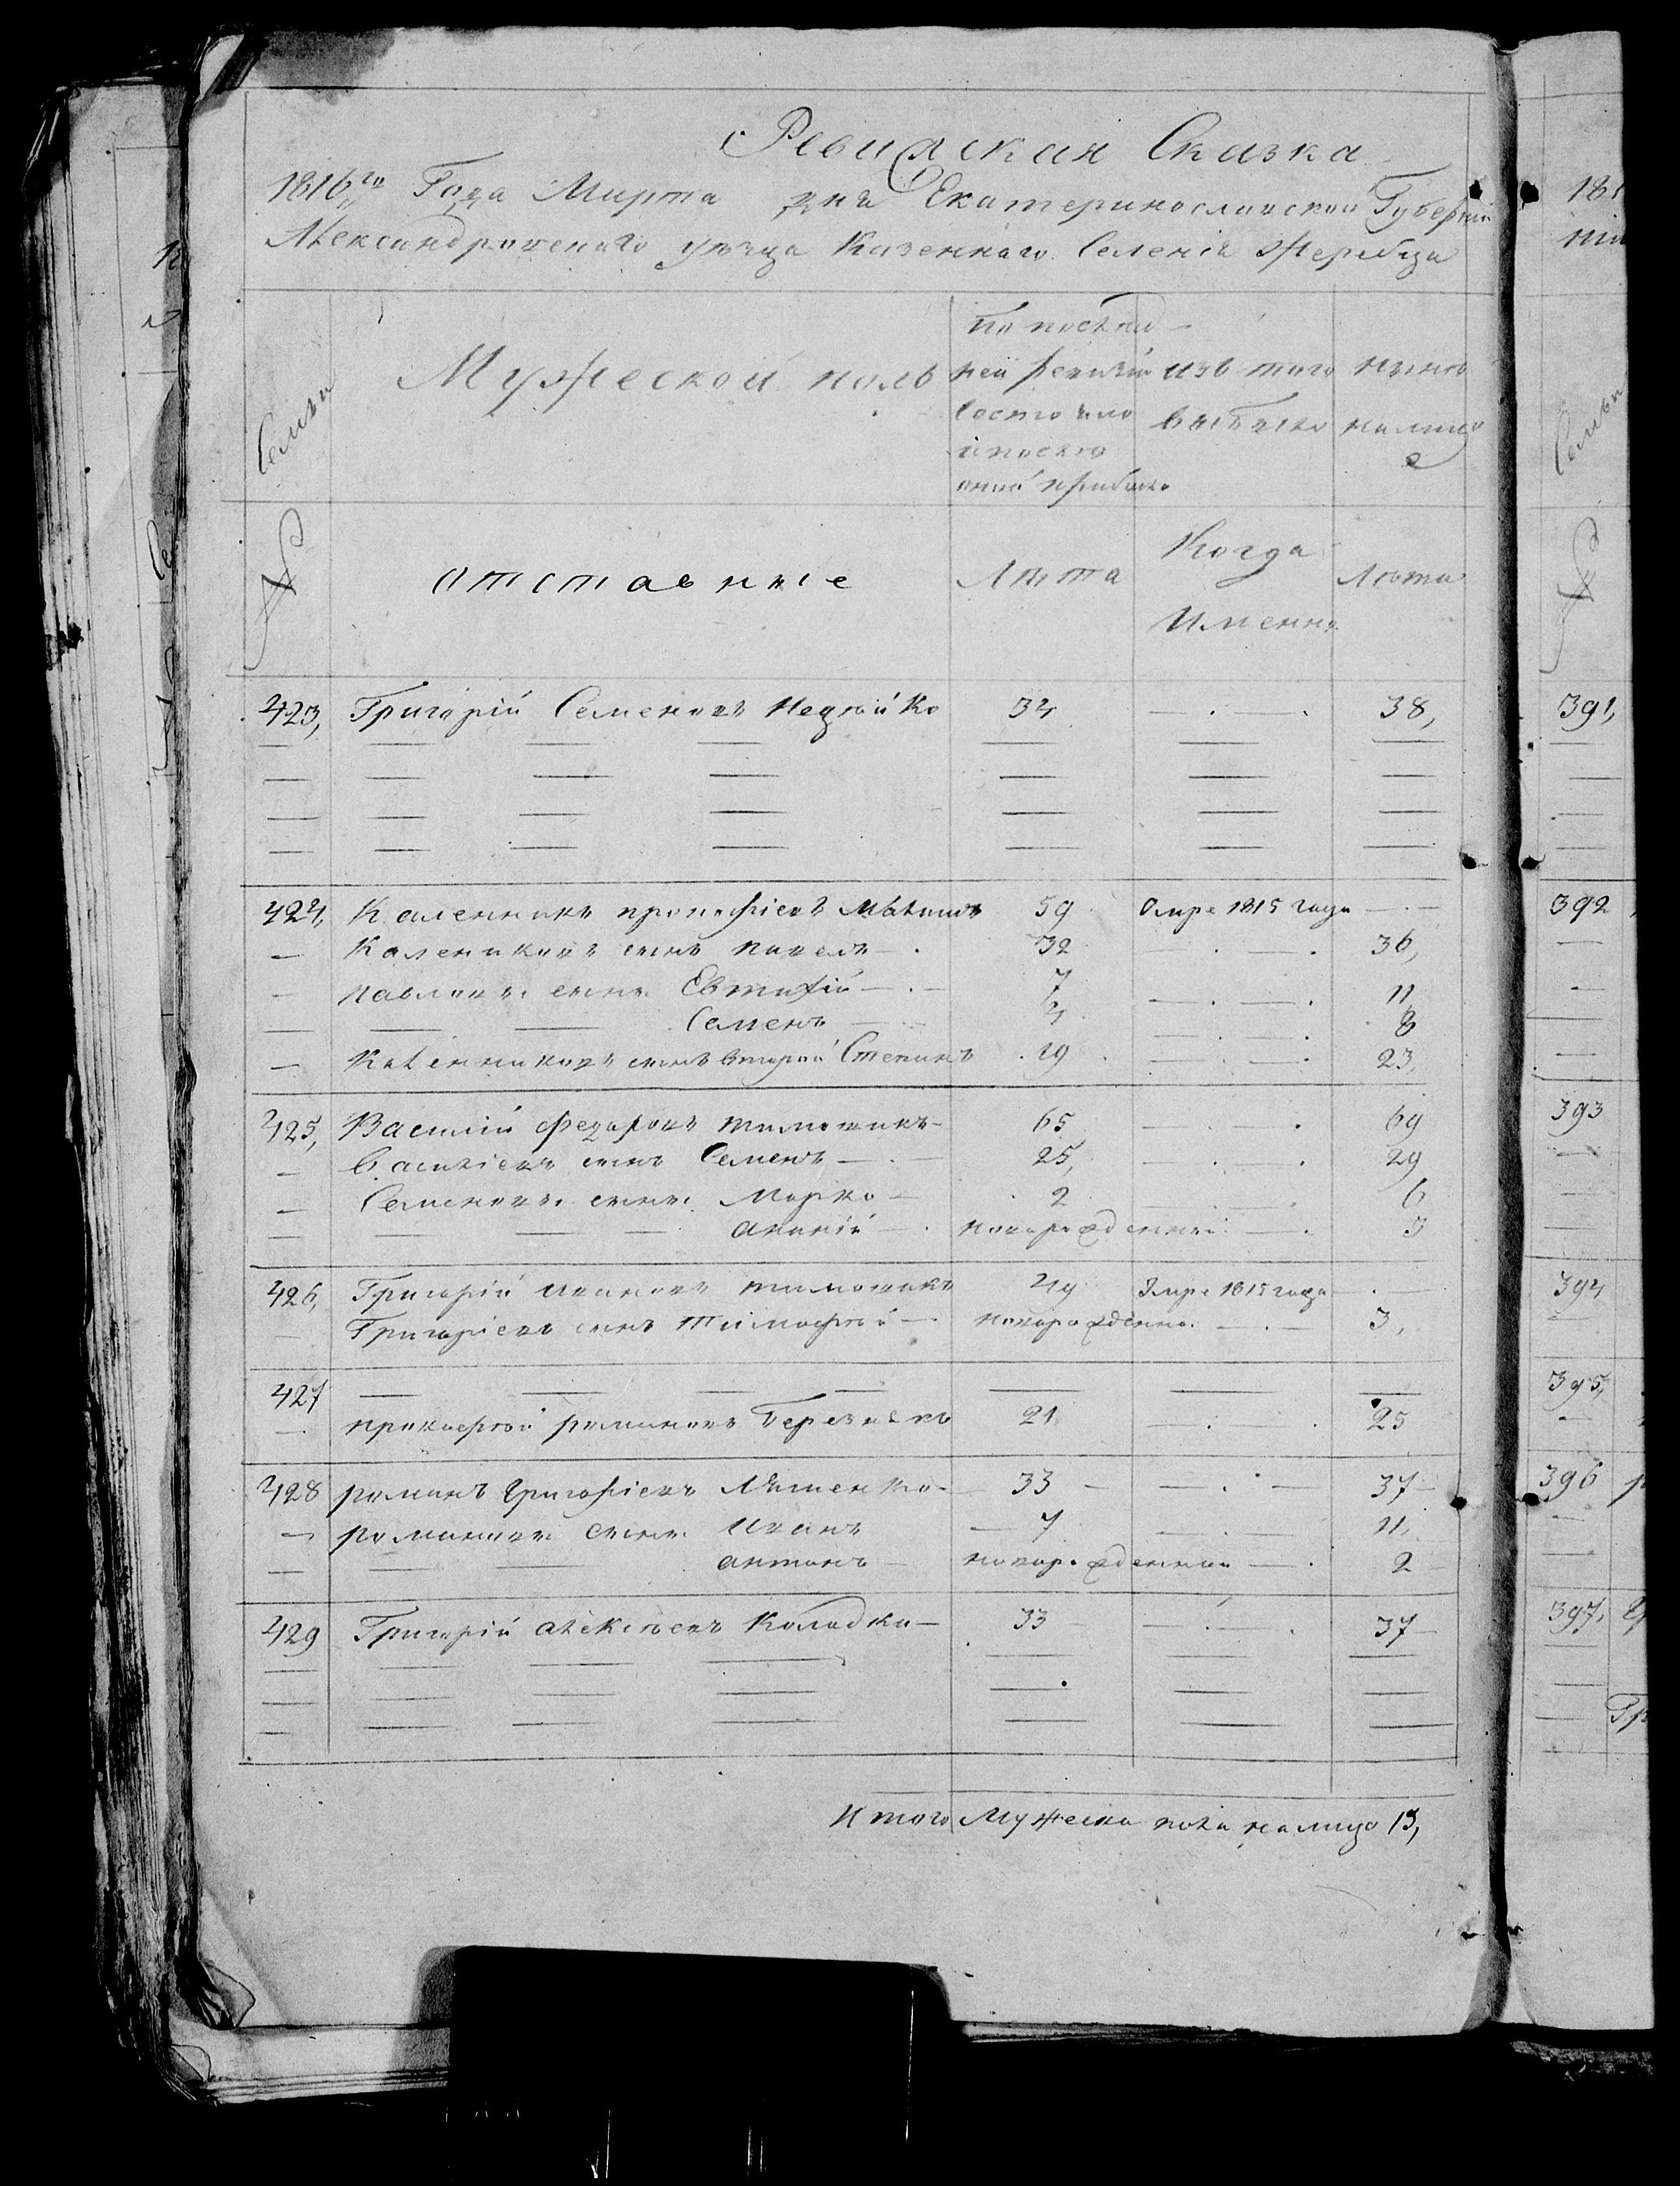 Ревизская Сказка
1816го Года Марта дня Екатеринославской Губернии
Александровского уезда Казеннаго Селения Жеребца
Семьи
Мужеской полъ
по послед
ней ревизии
состояло
и после
оной прибыло
изъ того
выбыло
ныне
налице
№
отставные
Лета
Когда
Именно
Лета
423, Григорий Семеновъ 34 38,
424, Каленникъ 59 Умре 1815 года
Калениковъ сынъ Павелъ 32 36,
Павловы сыны Евтифий 7 11,
Семенъ 4 8
Каленниковъ сынъ вторый Степанъ 19 23,
425, Василий Федоровъ 65 69
Васильевъ сынъ Семенъ 25, 29
Семеновы сыны Марко 2 6
Ананий новорожденный 3
426, Григорий Ивановъ 49 Умре 1815 года
Григориевъ сынъ Тимофей новорожденны 3,
427
Прокофей Романовъ 21 25
428 Романъ Григориевъ Ляшенко 33 37
Романовы сыны Иванъ 7 11,
Антонъ новорожденный 2
429 Григорий Алексеевъ Колодка 33 37
Итого Мужеска пола налицо 15,
391,
392
393
394
395,
396
397,